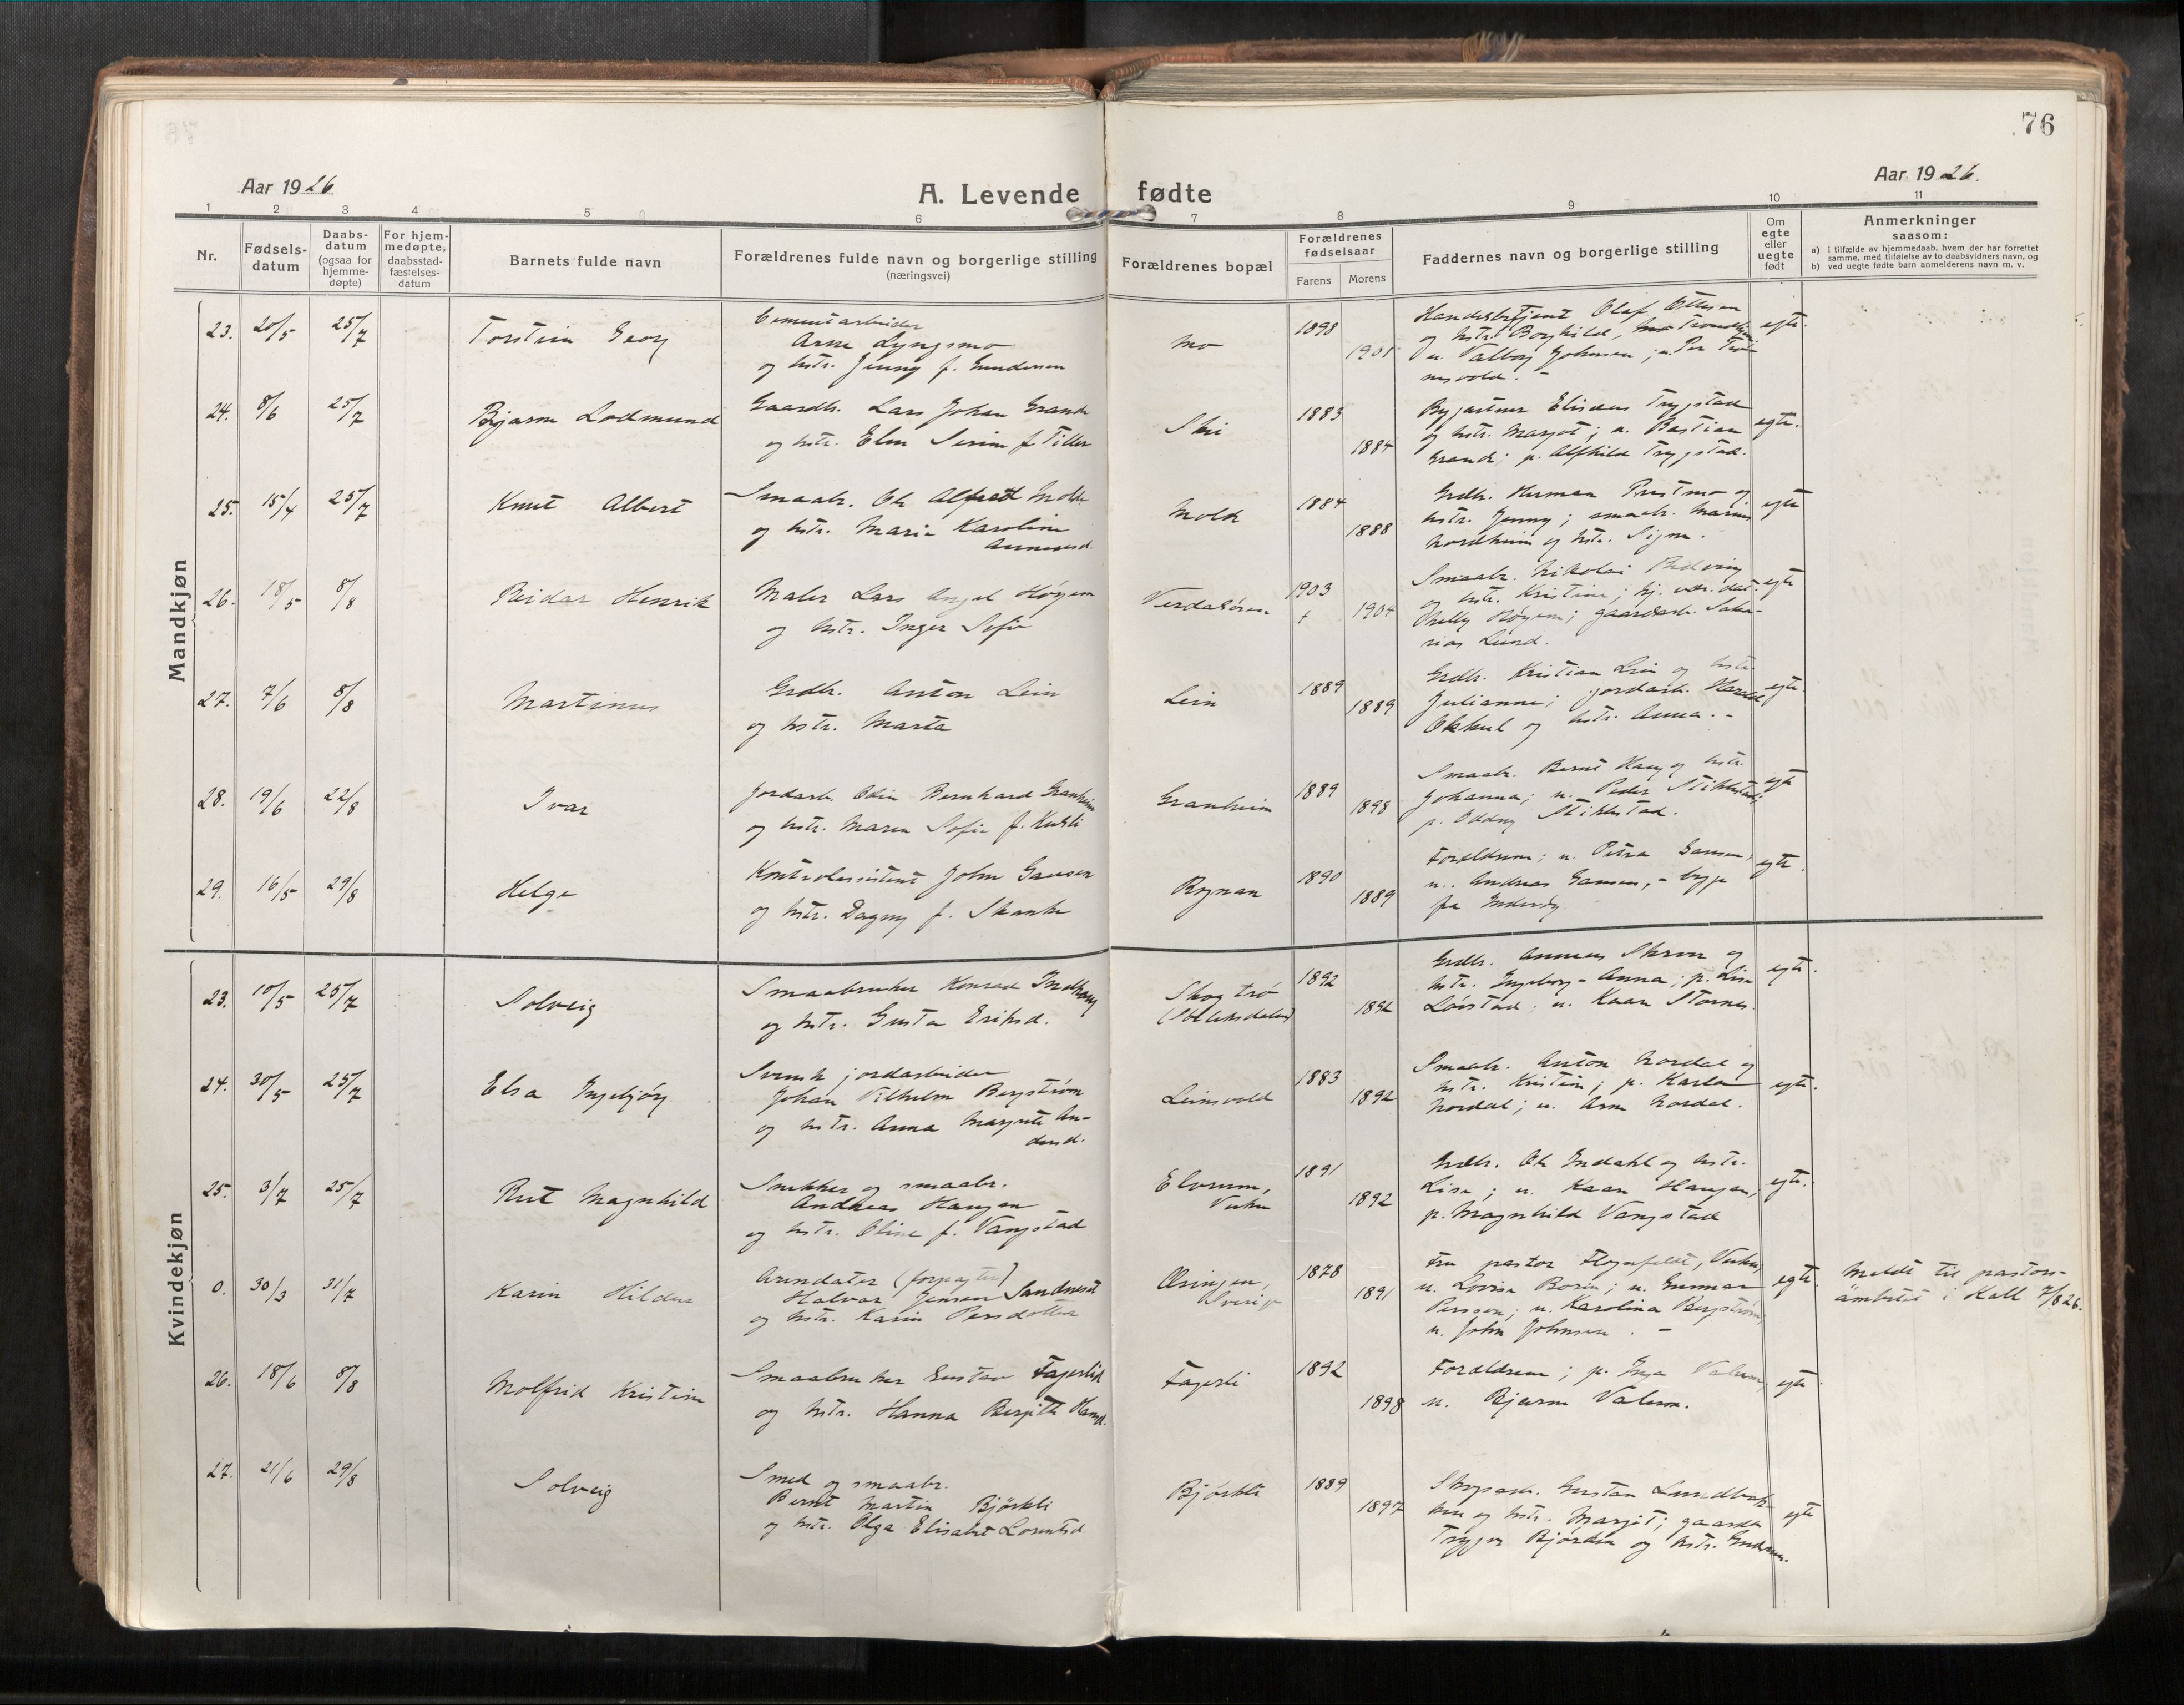 76
Aar 1926
A. Levende fødte
Aar 1926.
1 2 3 4 5 6 7 8 9 10 11
Nr.
Fødsels-
datum
Daabs-
datum
(ogsaa for
hjemme-
døpte)
For hjem-
medøpte,
daabsstad-
fæstelses-
datum
Barnets fulde navn
Forældrenes fulde navn og borgerlige stilling
(næringsvei)
Forældrenes bopæl
Forældrenes
fødselsaar
Farens Morens
Faddernes navn og borgerlige stilling
Om
egte
eller
uegte
født
Anmerkninger
saasom:
a) i tilfælde av hjemmedaab, hvem der har forrettet
samme, med tilføielse av to daabsvidners navn, og
b) ved uegte fødte barn anmelderens navn m. v.
Mandkjøn
23. 20/5 25/7 Torstein Georg
Cementarbeider
Arne Lyngsmo
og hstr. Jenny f. Gundersen
Mo
1898
1901
Olaf Ottesen
og hstr. Borghild,
u. Valborg Johnsen; u. Per
egte.
24. 8/6 25/7 Bjarne Lodmund
Gaardbr. Lars Johan Grande
og hstr. Elen Serine f. Tiller
Ski
1883
1884
Elisæus Trygstad
og hstr. Margot; u. Bastian
Grande; p. Alfhild Trygstad.
egte.
25. 15/4 25/7 Knut Albert
Smaabr. Ole Alfred Molde
og hstr. Marie Karoline
Molde
1884
1888
Grdbr. Herman Prestmo og
hstr. Jenny; smaabr. Marius
Nordheim og hstr. Signe.
egte
26. 18/5 8/8 Reidar Henrik
Maler Lars Angel Høgem
og hstr. Inger Sofie
Verdalsøren
1903
+ 1904
Smaabr. Nikolai
og hstr. Kristine; hj. vær. dat.
Høgem; gaardarb. Saka-
rias Lund.
egte
27. 7/6 8/8 Martinus
Grdbr. Anton Lein
og hstr. Marta
Lein
1889
1889
Grdbr. Kristian Lein og hstr.
Julianne; jordarb. Harald
Okkul og hstr. Anna. -
egte.
28. 19/6 22/8 Ivar
Jordarb. Odin Bernhard Granheim
og hstr. Maren Sofie f. Kusli
Granheim
1889
1898
Smaabr. Bernt Haug og hstr.
Johanna; u. Peder Stiklestad;
p. Oddny Stiklestad.
egte
29. 16/5 29/8 Helge
Kontrolassistent John Gausen
og hstr. Dagny f. Skanke
Rognan
1890
1889
Forældrene; u. Petra Gausen;
u. Andreas Gausen, - begge
fra Inderøy
egte.
Kvindekjøn
23. 10/5 25/7 Solveig
Smaabruker Konrad Indhaug
og hstr. Gusta Eriksd.
Skogtrø
1892
1892
Grdbr. Anneus Skrove og
hstr. Ingeborg-Anna; p. Lise
Løistad; u. Kaare Stornes.
egte.
24. 30/5 25/7 Elsa Ingebjörg
Svensk jordarbeider
Johan Vilhelm Bergström
og hstr. Anna Margrete An-
dersd.
Leinsvold
1883
1892
Smaabr. Anton Nordal og
hstr. Kristine; p. Karla
Nordal; u. Arne Nordal.
egte.
25. 3/7 25/7 Rut Magnhild
Snekker og smaabr.
Andreas Haugen
og hstr. Oline f. Vangstad
Elvrum,
Vuku
1891
1892
Grdbr. Ole Indahl og hstr.
Lise; u. Kaare Haugan,
p. Magnhild Vangstad
egte.
0. 30/3 31/7 Karin Hildur
Arendator (forpagter)
Halvar Jensen Sandnest
og hstr. Karin Persdotter
Sverige
1878
1891
Fru pastor Flognfeldt, Vuku,
u. Lovise Borin; u. Gunnar
Persson; u. Karolina Bergström;
u. John Johnsen. -
egte.
Meldt til pastors-
ämbetet i Kall 7/8 26.
26. 18/6 8/8 Molfrid Kristine
Smaabruker Gustav Fagerlid
og hstr. Hanna Bergitte Hansd.
Fagerli
1892
1898
Forældrene; p. Inga Valum,
u. Bjarne Valum.
egte
27. 21/6 29/8 Solveig
Smed og smaabr.
Bernt Martin Bjørkli
og hstr. Olga Elisabet Lorentsd
Bjørkli
1889
1897
Skogsarb. Gustav Lundbak-
ken og hstr. Margit; gaardbr.
Trygve Bjørken og hstr. Gudrun.
egte